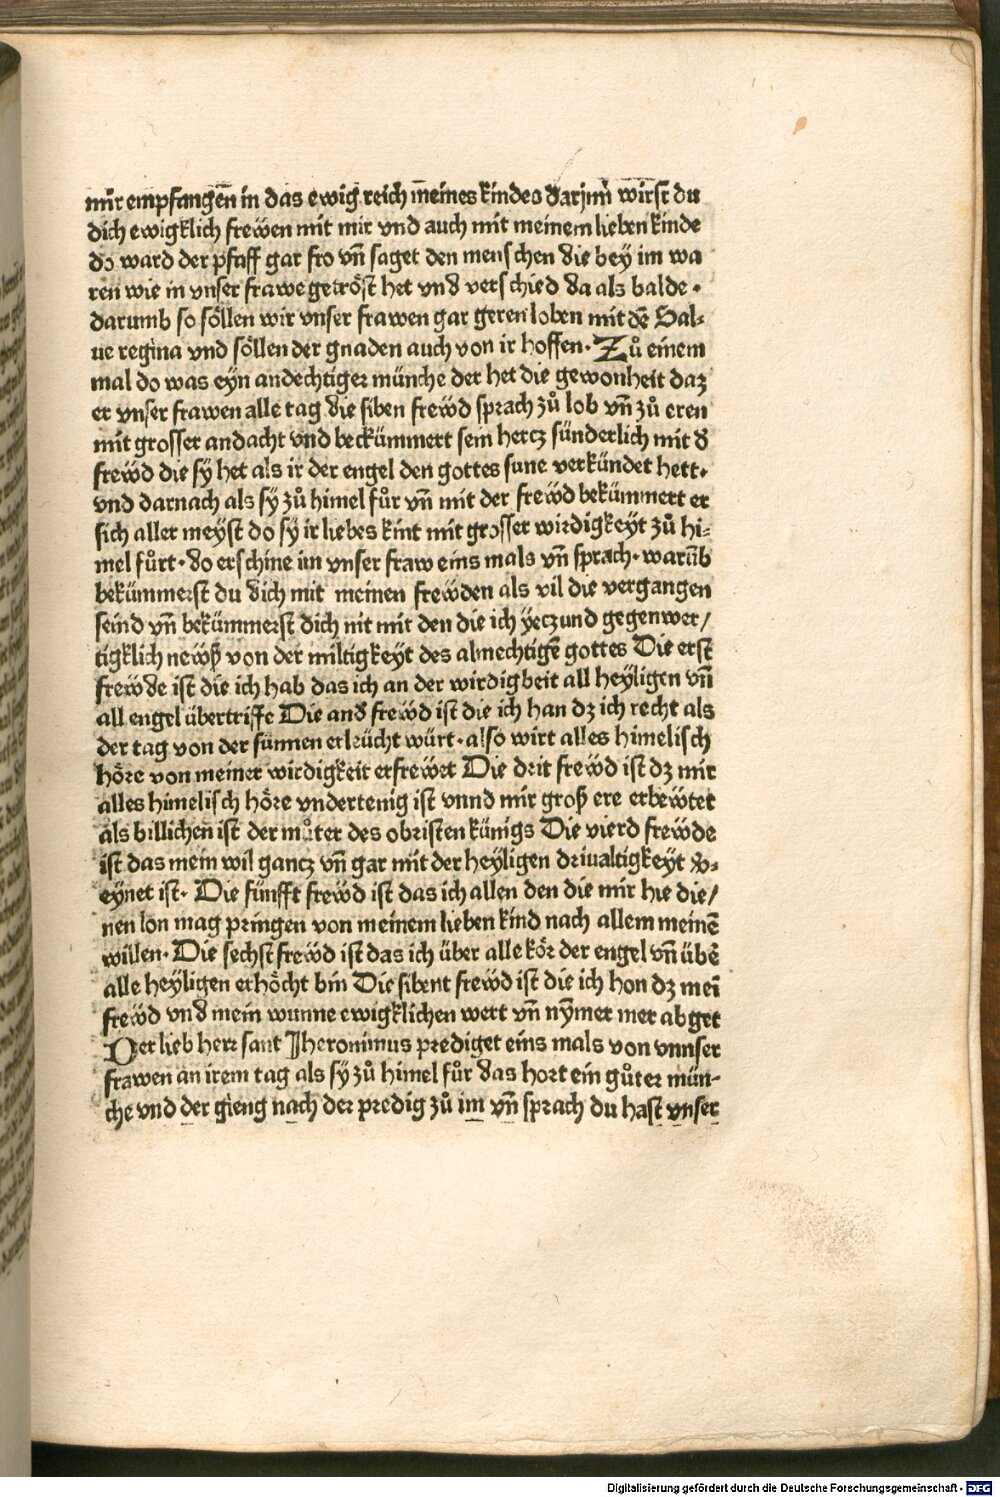 mir empfangen in das ewig reich meines kindes darjnn wirst du
dich ewigklich frewen mit mir vnd auch mit meinem lieben kinde
do ward der pfaff gar fro vn̄ saget den menschen die bey im wa
ren wie in vnser frawe getröst het vnd verschied da als balde ·
darumb so söllen wir vnser frawen gar geren loben mit dē Sal⸗
ue regina vnd söllen der gnaden auch von ir hoffen · Zů einem
mal do was eyn andechtiger münche der het die gewonheit daz
er vnser frawen alle tag die siben frewd sprach zů lob vn̄ zů eren
mit grosser andacht vnd beckümmert sein hercz sünderlich mit d
frewd die sÿ het als ir der engel den gottes sune verkündet hett ·
vnd darnach als sÿ zů himel fůr vn̄ mit der frewd bekümmert er
sich aller meyst do sÿ ir liebes kint mit grosser wirdigkeyt zů hi⸗
mel fůrt · do erschine im vnser fraw eins mals vn̄ sprach · warūb
bekümmerst du dich mit meinen frewden als vil die vergangen
seind vn̄ bekümmerst dich nit mit den die ich yeczund gegenwer/
tigklich newß von der miltigkeyt des almechtigē gottes Die erst
frewde ist die ich hab das ich an der wirdigbeit all heyligen vn̄
all engel übertriffe Die and frewd ist die ich han dz ich recht als
der tag von der sunnen erleücht würt · also wirt alles himelisch
höre von meiner wirdigkeit erfrewet Die drit frewd ist dz mir
alles himelisch höre vndertenig ist vnnd mir groß ere erbewtet
als billichen ist der můter des obristen künigs Die vierd frewde
ist das mein wil gancz vn̄ gar mit der heyligen driualtigkeyt v⸗
eynet ist · Die fünfft frewd ist das ich allen den die mir hie die/
nen lon mag pringen von meinem lieben kind nach allem meinē
willen · Die sechst frewd ist das ich über alle kör der engel vn̄ übē
alle heyligen erhöcht bin Die sibent frewd ist die ich hon dz mei̅
frewd vnd mein wunne ewigklichen wert vn̄ nÿmer mer abget
Der lieb herr sant Jheronimus prediget eins mals von vnnser
frawen an irem tag als sÿ zů himel fůr das hort ein gůter mün⸗
che vnd der gieng nach der predig zů im vn̄ sprach du hast vnser
Digitalisierung gefördert durch die Deutsche Forschungsgemeinschaft - DFG